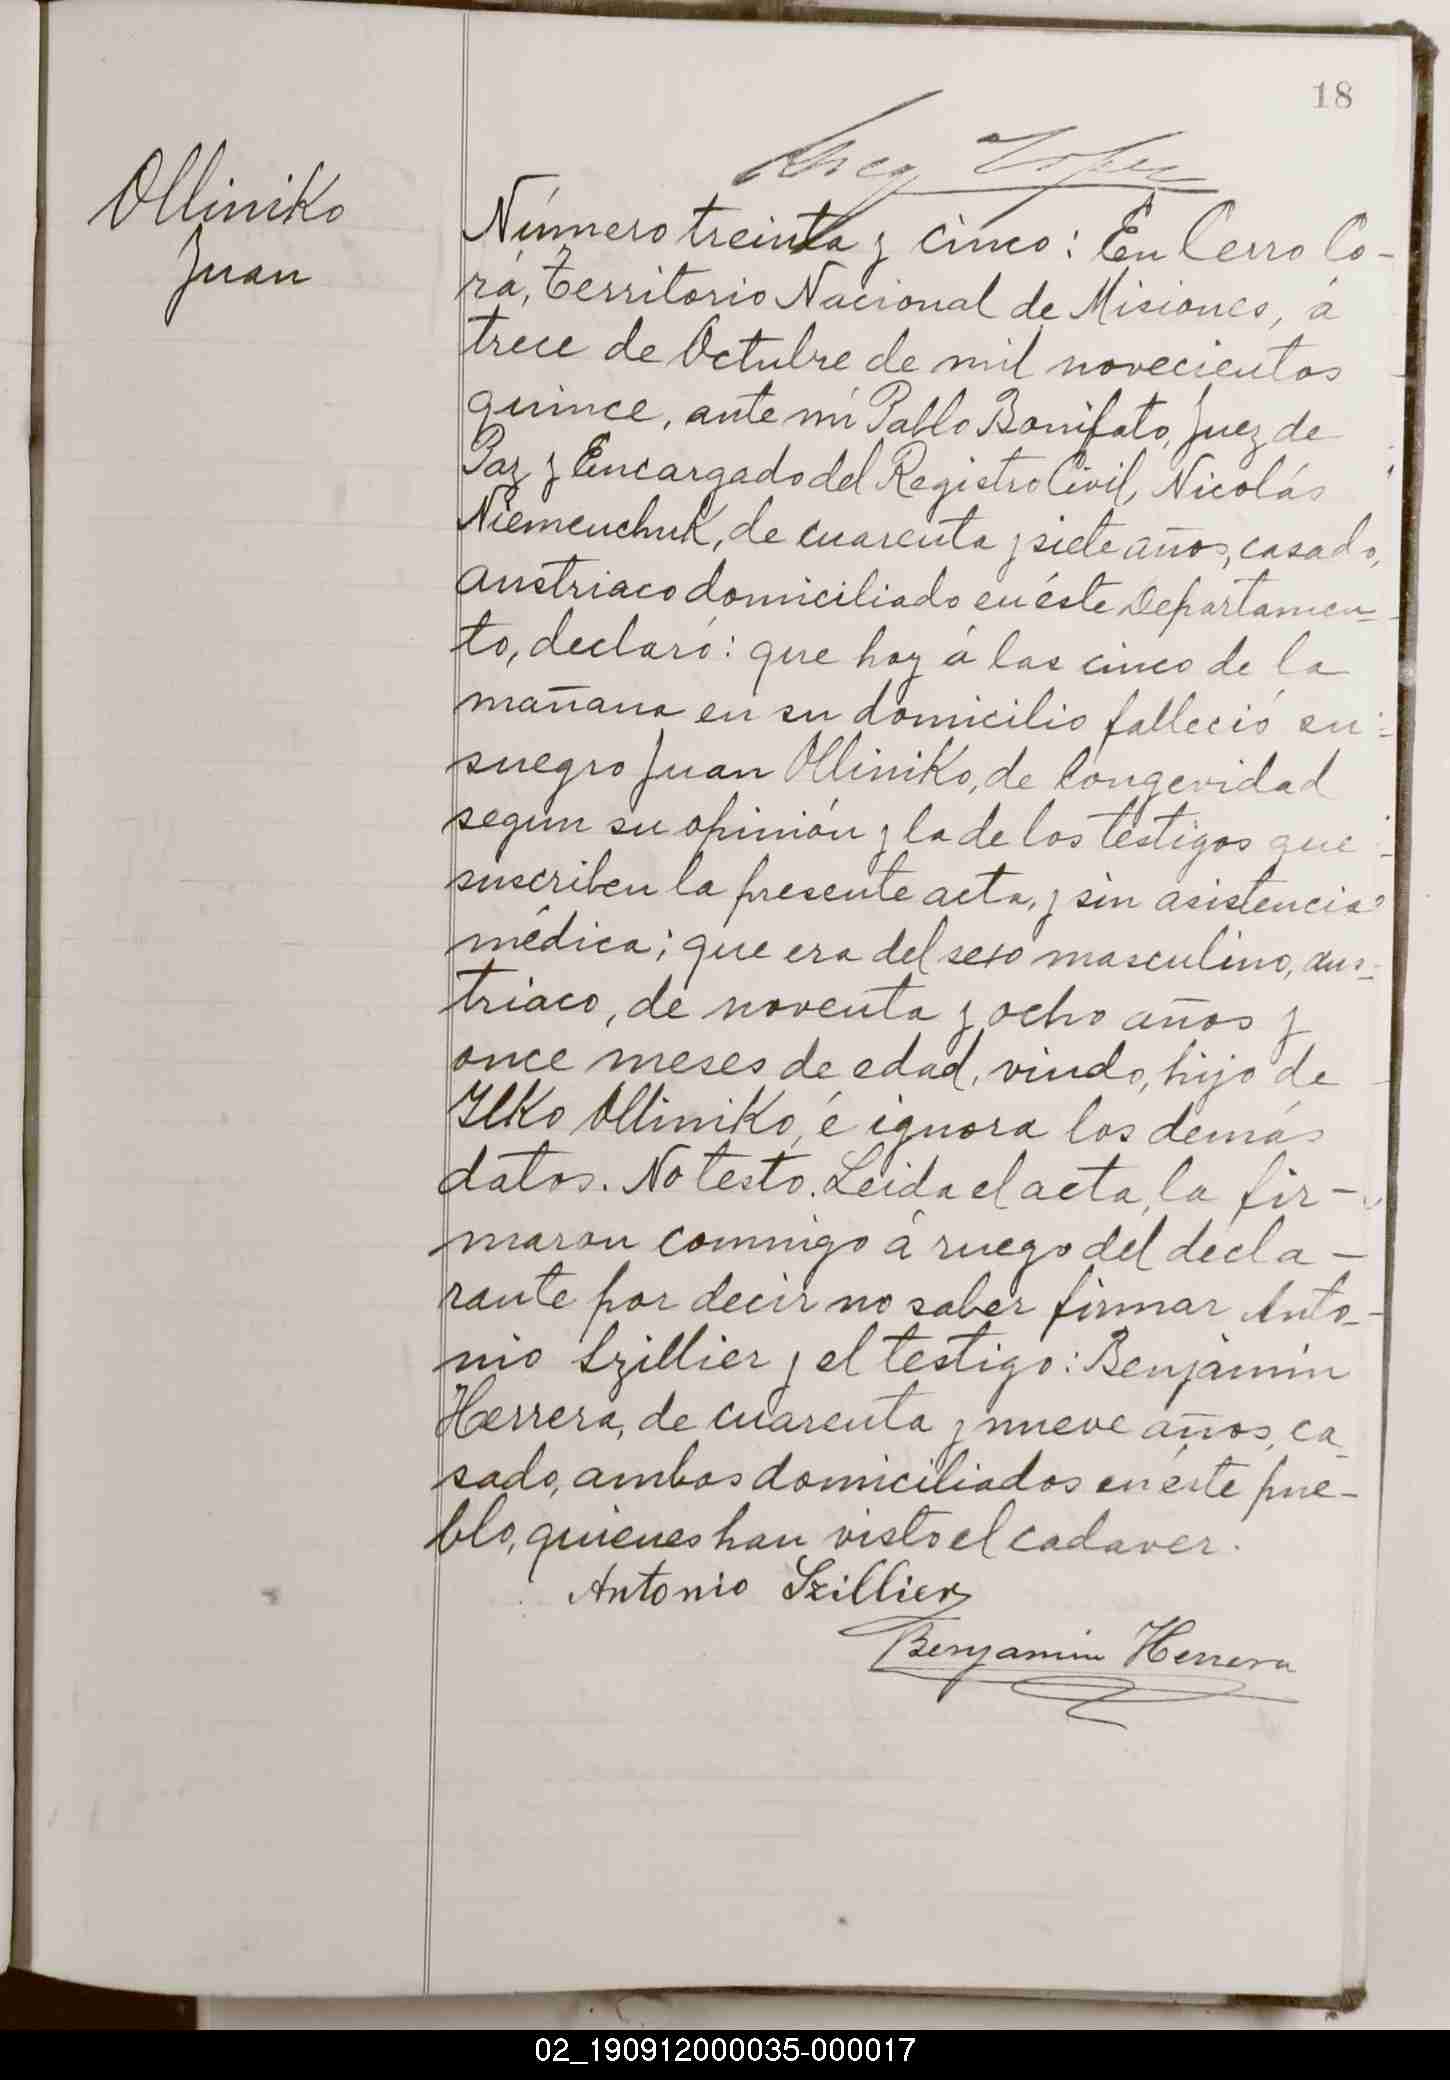 18
Olliniko
Juan
Número treinta y cinco: En Cerro Co-
rá, Territorio Nacional de Misiones, á
trece de Octubre de mil novecientos
quince, ante mí Pablo Bonifato, Juez de
Paz y Encargado del Registro Civil, Nicolás
Niemeuchuk, de cuarenta y siete años, casado,
austriaco domiciliado en éste Departamen-
to, declaró: que hoy á las cinco de la
mañana en su domicilio falleció su
suegro Juan Olliniko, de longevidad
segun su opinión y la de los testigos que
suscriben la presente acta, y sin asistencia
médica; que era del sexo masculino, aus-
triaco, de noventa y ocho años y
once meses de edad, viudo, hijo de
Ilko Olliniko, é ignora los demás
datos. No testó. Leida el acta, la fir-
maron conmigo á ruego del decla-
rante por decir no saber firmar Anto-
nio Szillier y el testigo: Benjamin
Herrera, de cuarenta y nueve años, ca-
sado, ambos domiciliados en éste pue-
blo, quienes han visto el cadaver.
Antonio Szillier
Benjamin Herrera
02_190912000035-000017